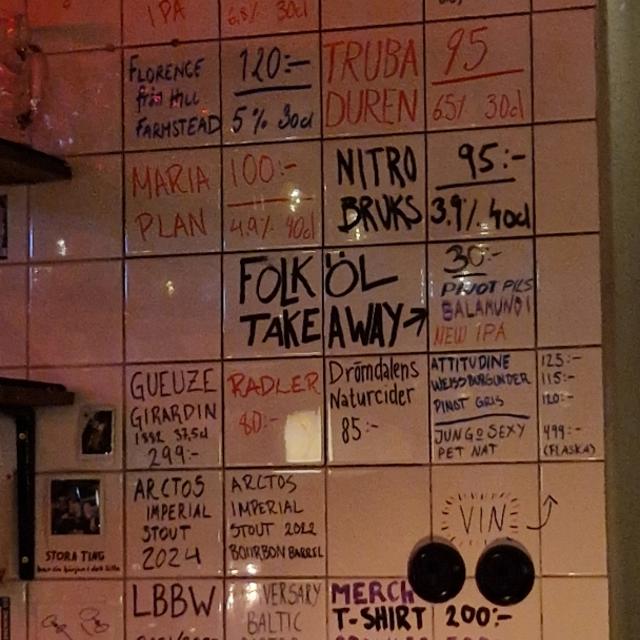 IPA
6,8% 30cl
FLORENCE
från HILL
FARMSTEAD
120:-
5% 30cl
TRUBA
DUREN
95
6,5% 30cl
MARIA
PLAN
100:-
4.9% 40cl
NITRO
BRUKS
95:-
3.9% 40cl
FOLKÖL
TAKEAWAY→
30:-
PIVOT PILS
BALAMUNDI
NEW IPA
GUEUZE
GIRARDIN
1882 37,5cl
299:-
RADLER
80:-
Drömdalens
Naturcider
85:-
ATTITUDINE 125:-
WEISSBURGUNDER 115:-
PINOT GRIS 120:-
JUNG & SEXY 499:-
PET NAT (FLASKA)
ARCTOS
IMPERIAL
STOUT
2024
ARCTOS
IMPERIAL
STOUT 2022
BOURBON BARREL
VIN
STORA TING
LBBW
BALTIC
MERCH
T-SHIRT 200:-